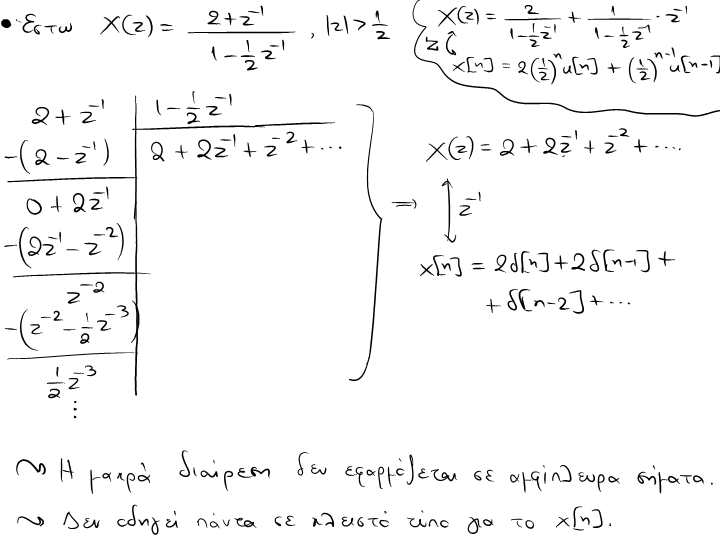 • Έστω X(z) = (2+z⁻¹)/(1-½z⁻¹), |z|>½
X(z) = 2/(1-½z⁻¹) + 1/(1-½z⁻¹) · z⁻¹
x[n] = 2(½)ⁿu[n] + (½)ⁿ⁻¹u[n-1]
2+z⁻¹ | 1-½z⁻¹
-(2-z⁻¹) | 2+2z⁻¹+z⁻²+...
0+2z⁻¹
-(2z⁻¹-z⁻²)
z⁻²
-(z⁻²-½z⁻³)
½z⁻³
⋮
X(z) = 2+2z⁻¹+z⁻²+....
⇒ ↕ z⁻¹
x[n] = 2δ[n]+2δ[n-1]+
+δ[n-2]+...
~> Η μακρά διαίρεση δεν εφαρμόζεται σε αμφίπλευρα σήματα.
~> Δεν οδηγεί πάντα σε κλειστό τύπο για το x[n].